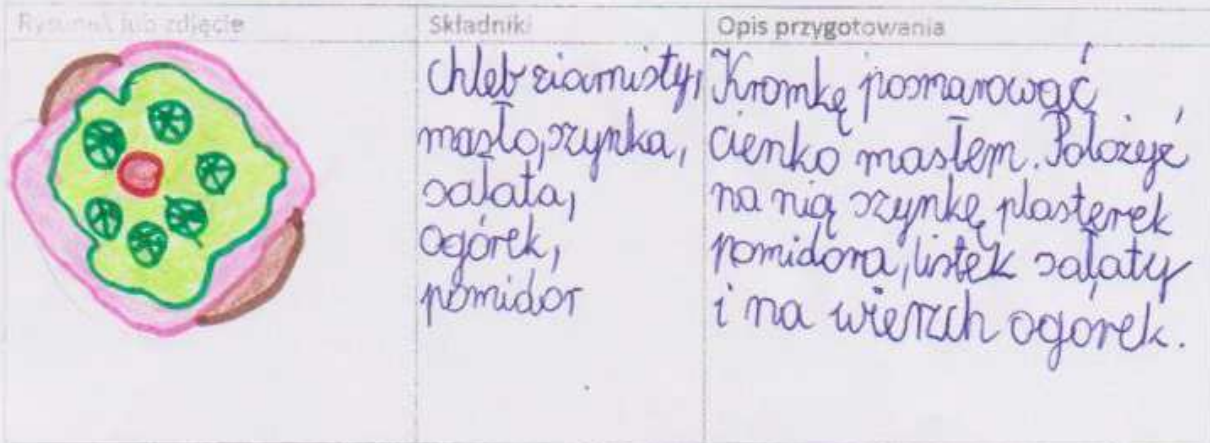 Rysunek lub zdjęcie
Składniki
Opis przygotowania
chleb ziarnisty,
masło, szynka,
sałata,
ogórek,
pomidor
Kromkę posmarować
cienko masłem. Położyć
na nią szynkę, plasterek
pomidora, listek sałaty
i na wierzch ogórek.